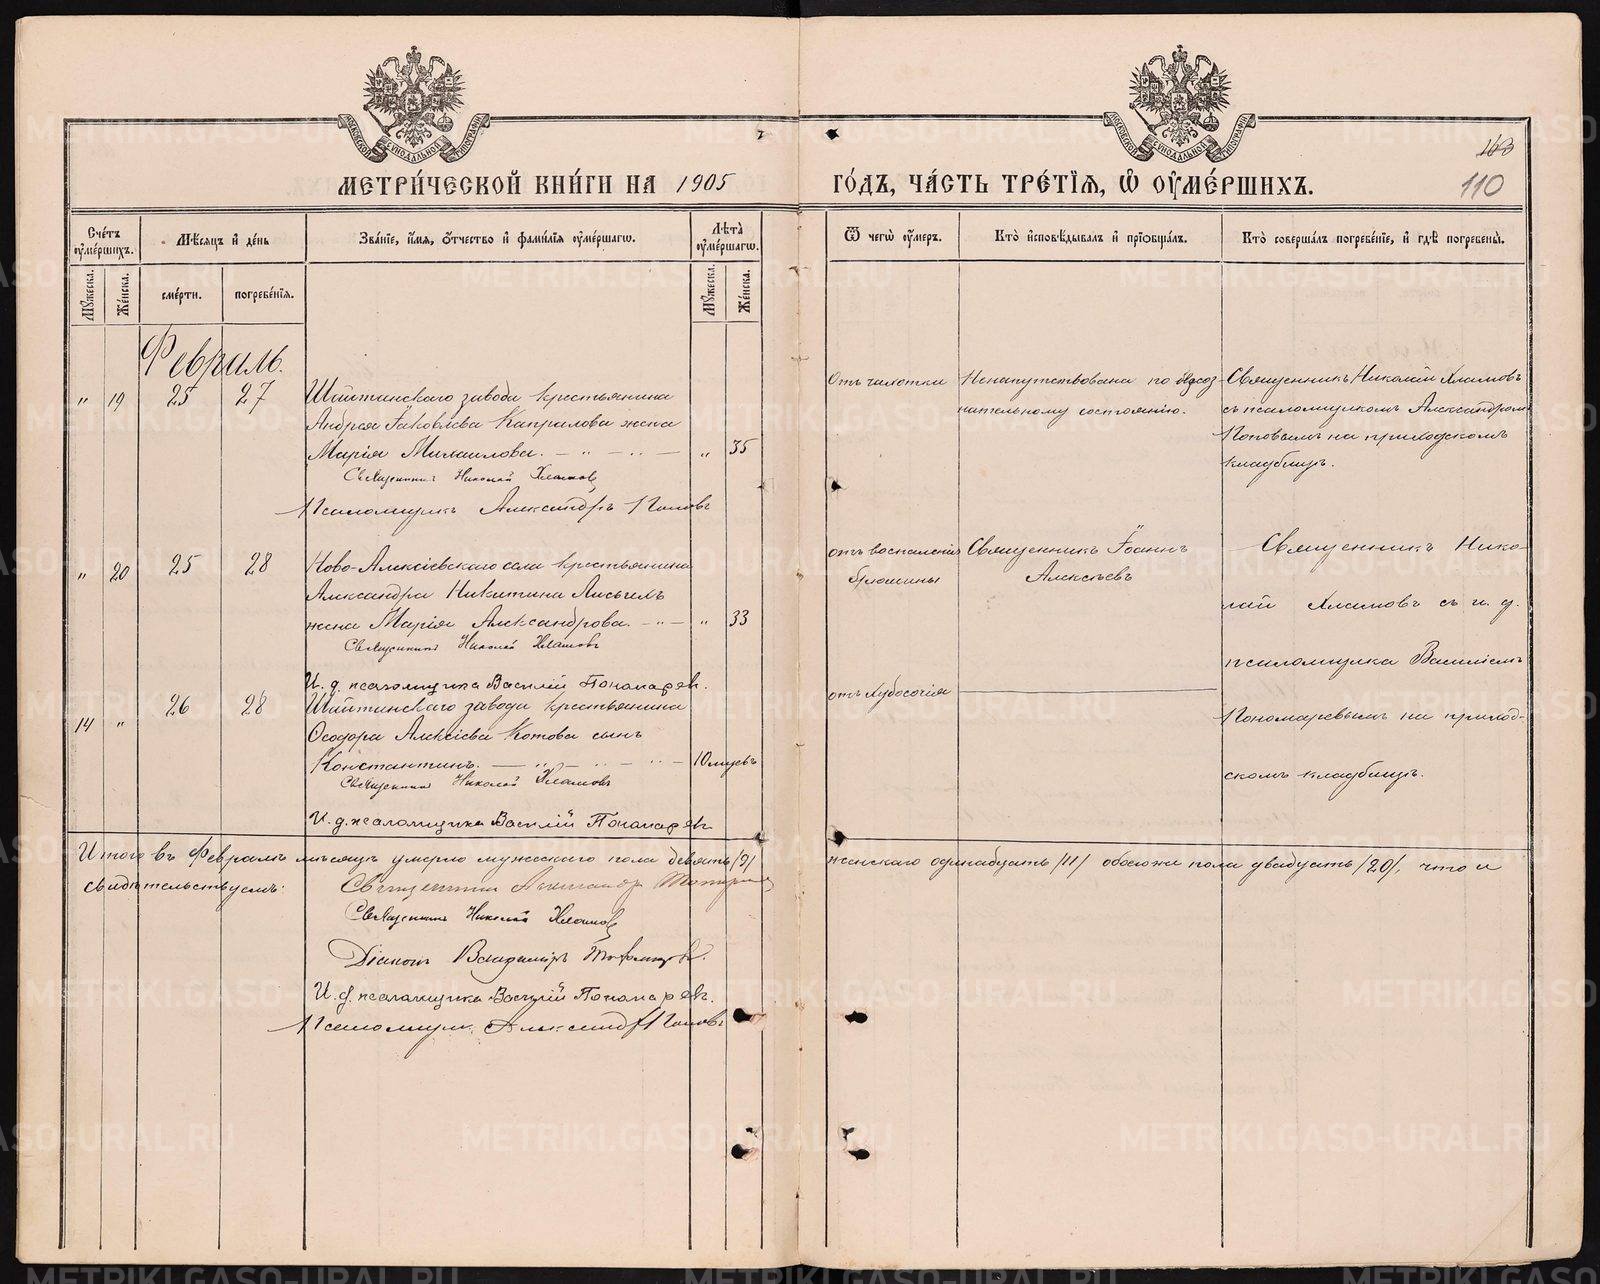 МЕТРИ́ЧЕСКОЙ КНИ́ГИ НА 1905
ГО́ДЪ, ЧА́СТЬ ТРЕ́ТІѦ, Ѡ҆ ОУ҆МЕ́РШИХЪ.
163
110
Сче́тъ оу҆ме́ршихъ.
Мꙋ́жеска.
Же́нска.
Мѣ́сѧцъ и҆ де́нь
сме́рти.
погребе́нїѧ.
Зва́нїе, и҆́мѧ, ѻ҆́тчество и҆ фами́лїѧ оу҆ме́ршагѡ.
Лѣ́та̀ оу҆ме́ршагѡ.
Мꙋ́жеска.
Же́нска.
Ѿ чегѡ̀ оу҆́меръ.
Кто̀ и҆сповѣ́дывалъ и҆ прїѻбща́лъ.
Кто̀ соверша́лъ погребе́нїе, и҆ гдѣ̀ погребены̀.
Февраль.
" 19 25 27
Шайтанскаго завода крестьянина
Андрея Іаковлева Капралова жена
Марія Михаилова. — " — " — " 35
Священникъ Николай Хламовъ
Псаломщикъ Александръ Поповъ
Отъ чахотки
Ненапутствована по безсоз-
нательному состоянію.
Священникъ Николай Хламовъ
съ псаломщикомъ Александромъ
Поповымъ на приходскомъ
кладбищѣ.
" 20 25 28
Ново-Алексѣевскаго села крестьянина
Александра Никитина
жена Марія Александрова. — " — " 33
Священникъ Николай Хламовъ
И. д. псаломщика Василій Пономаревъ.
отъ воспаленія
брюшины
Священникъ Іоаннъ
Алексѣевъ
Священникъ Нико-
лай Хламовъ съ и. д.
псаломщика Василіемъ
Пономаревымъ на приход-
скомъ кладбищѣ.
14 " 26 28
Шайтанскаго завода крестьянина
Ѳеодора Алексѣева Котова сынъ
Константинъ. — " — " — " — 10 мѣсяцевъ
Священникъ Николай Хламовъ
И. д. псаломщика Василій Пономаревъ
отъ худосочія
Итого въ Февралѣ мѣсяцѣ умерло мужескаго пола девять /9/
женскаго одинадцать /11/ обоего пола двадцать /20/, что и
свидѣтельствуемъ:
Священникъ Александръ
Священникъ Николай Хламовъ
Діаконъ Владиміръ
И. д. псаломщика Василій Пономаревъ.
Псаломщикъ Александръ Поповъ
METRIKI.GASO-URAL.RU